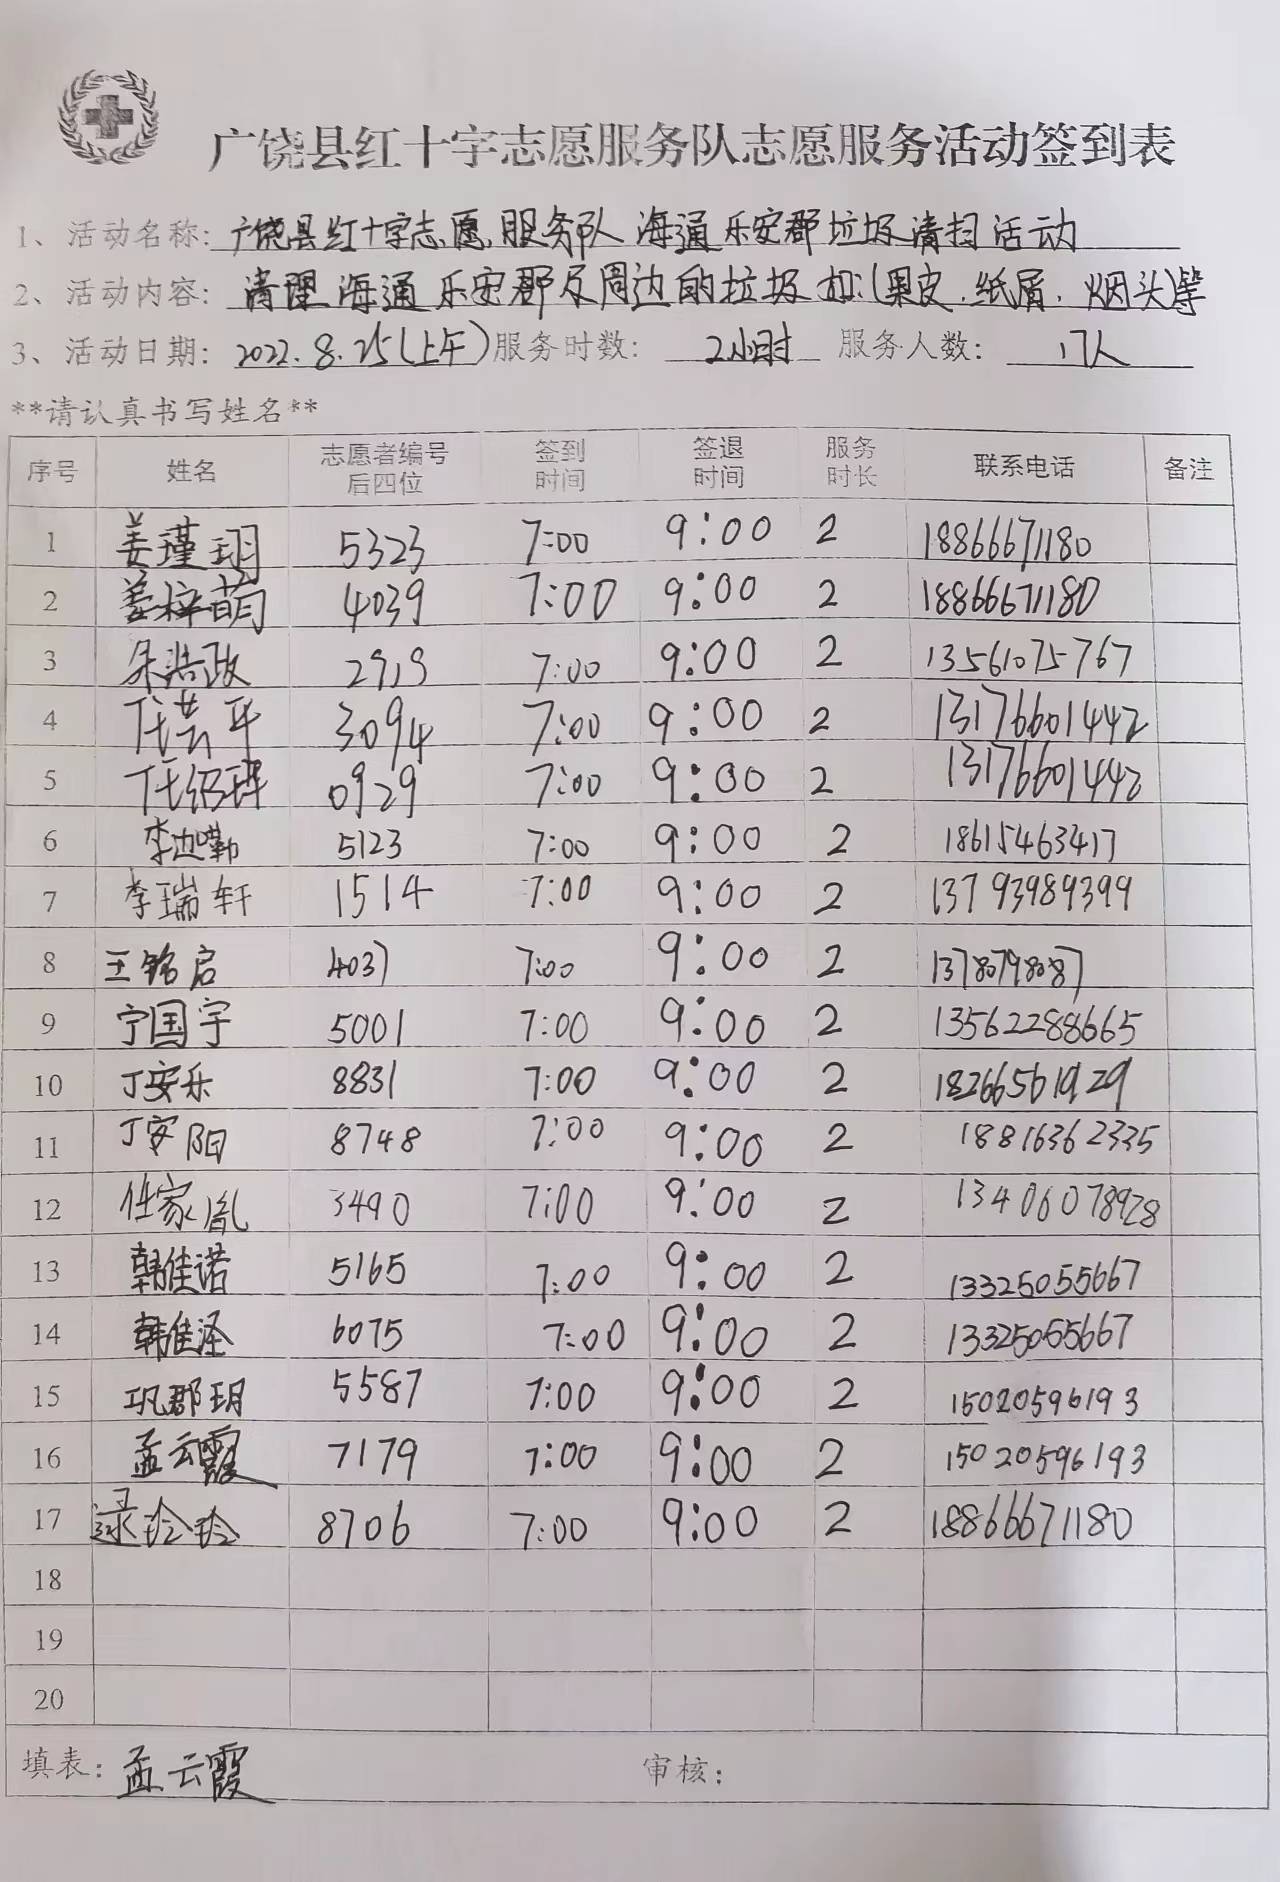 广饶县红十字志愿服务队志愿服务活动签到表
1、活动名称：广饶县红十字志愿服务队海通乐安郡垃圾清扫活动
2、活动内容：清理海通乐安郡及周边的垃圾如：(果皮、纸屑、烟头)等
3、活动日期：2022.8.25(上午)服务时数：2小时 服务人数：17人
**请认真书写姓名**
序号 姓名 志愿者编号后四位 签到时间 签退时间 服务时长 联系电话 备注
1 姜瑾玥 5323 7:00 9:00 2 18866671180
2 姜梓萌 4039 7:00 9:00 2 18866671180
3 浩政 2919 7:00 9:00 2 13561075767
4 任芸平 3094 7:00 9:00 2 13176601442
5 任绍 0929 7:00 9:00 2 13176601442
6 李 5123 7:00 9:00 2 18615463417
7 李瑞轩 1514 7:00 9:00 2 13793989399
8 王铭启 4037 7:00 9:00 2 13780798087
9 宁国宇 5001 7:00 9:00 2 13562288665
10 丁安乐 8831 7:00 9:00 2 18266561929
11 丁安阳 8748 7:00 9:00 2 18816362335
12 任家胤 3490 7:00 9:00 2 13406078928
13 韩佳诺 5165 7:00 9:00 2 13325055667
14 韩佳泽 6075 7:00 9:00 2 13325055667
15 巩郡玥 5587 7:00 9:00 2 15020596193
16 孟云霞 7179 7:00 9:00 2 15020596193
17 逯玲玲 8706 7:00 9:00 2 18866671180
18
19
20
填表：孟云霞 审核：